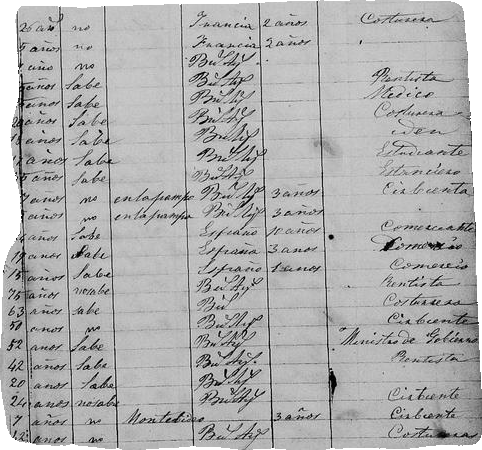 26 años no Francia 2 años Costurera
5 años no Francia 2 años
año no Bu Ays
años Sabe Bu Ays Rentista
años Sabe Bu Ays Medico
años Sabe Bu Ays Costurera
años Sabe Bu Ays iden
años Sabe Bu Ays Estudiante
años Sabe Bu Ays Estanciero
años no en la pampa Bu Ays 3 años Cirbienta
años no en la pampa Bu Ays 3 años
años Sabe España 10 años Comerciante
años Sabe España 3 años Comercio
15 años Sabe España años Comercio
75 años no sabe Bu Ays Rentista
63 años sabe Bu Costurera
50 anos no Bu Ays Cirbiente
52 anos Sabe Bu Ays Ministro de Gobierno
42 años Sabe Bu Ays Rentista
20 anos Sabe Bu Ays
24 anos no sabe Bu Ays Cirbiente
7 años no Montebideo 3 años Cirbiente
12 anos no Bu Ays Costureras